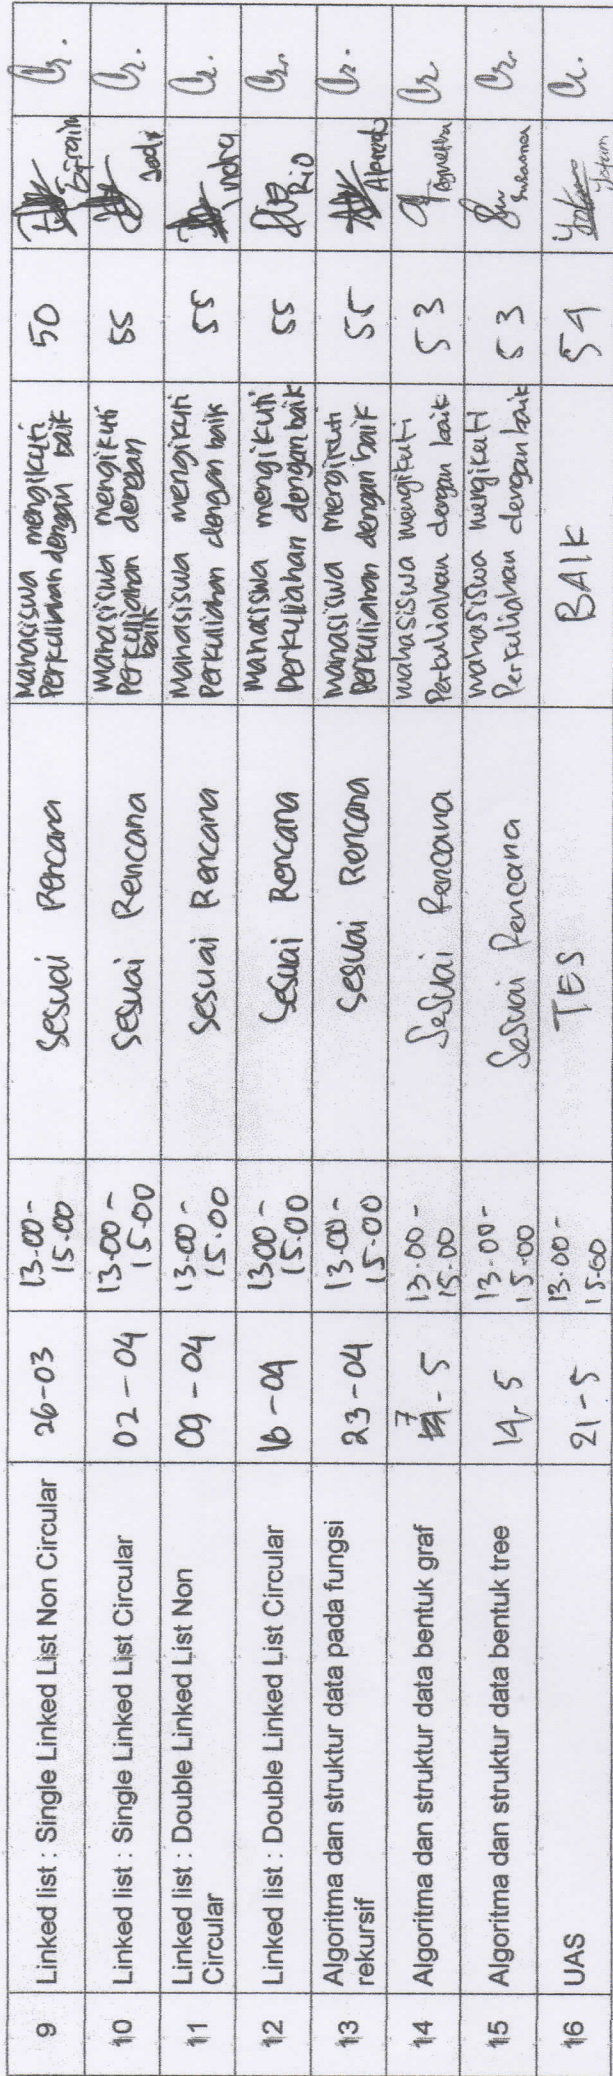 9 Linked list : Single Linked List Non Circular 26-03 13.00 - 15.00 Sesuai Rencana Mahasiswa mengikuti Perkuliahan dengan baik 50 Efraim
10 Linked list : Single Linked List Circular 02-04 13.00 - 15.00 Sesuai Rencana Mahasiswa mengikuti Perkuliahan dengan baik 55 Jodi
11 Linked list : Double Linked List Non Circular 09-04 13.00 - 15.00 Sesuai Rencana Mahasiswa mengikuti Perkuliahan dengan baik 55 indra
12 Linked list : Double Linked List Circular 16-04 13.00 - 15.00 Sesuai Rencana Mahasiswa mengikuti Perkuliahan dengan baik 55 Rio
13 Algoritma dan struktur data pada fungsi rekursif 23-04 13.00 - 15.00 Sesuai Rencana Mahasiswa mengikuti Perkuliahan dengan baik 55
14 Algoritma dan struktur data bentuk graf 7 - 5 13.00 - 15.00 Sesuai Rencana Mahasiswa mengikuti Perkuliahan dengan baik 53
15 Algoritma dan struktur data bentuk tree 14-5 13.00 - 15.00 Sesuai Rencana Mahasiswa mengikuti Perkuliahan dengan baik 53
16 UAS 21-5 13.00 - 15.00 TES BAIK 54